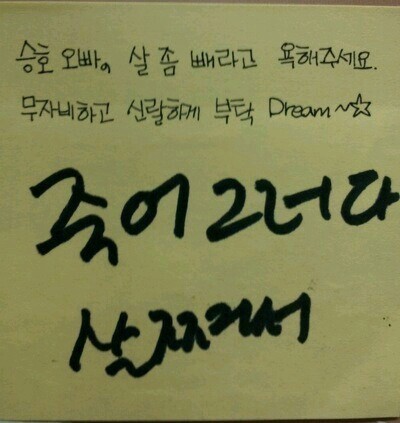 승호 오빠, 살 좀 빼라고 욕해주세요.
무자비하고 신랄하게 부탁 Dream~☆
죽어 그러다
살쪄서